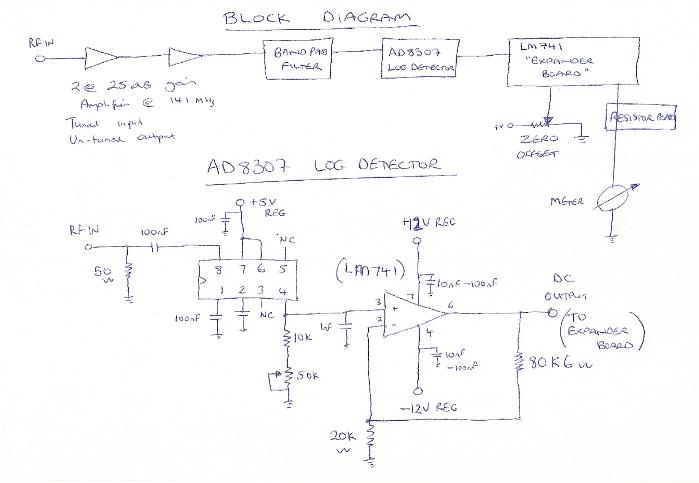 BLOCK DIAGRAM
RF IN
BAND PASS
FILTER
AD8307
LOG DETECTOR
LM741
"EXPANDER
BOARD"
2 @ 25 dB gain
Amplifier @ 141 MHz
Tuned input
Un-tuned output
+V
ZERO
OFFSET
RESISTOR BOARD
METER
AD8307 LOG DETECTOR
+5V
REG
100nF
RF IN
100nF
NC
50
8 7 6 5
1 2 3 4
100nF
NC
10K
50K
1nF
(LM741)
+12V REG
10nF-100nF
7
3
+
2
-
6
4
10nF
-100nF
-12V REG
DC
OUTPUT
(TO
EXPANDER
BOARD)
80K6
20K